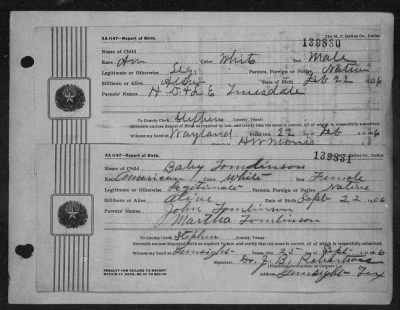 XA 1147—Report of Birth.
The M. P. Exline Co., Dallas
139830
Name of Child
Race Am Color White Sex Male
Legitimate or Otherwise Leg. Parents, Foreign or Native Native
Stillborn or Alive Alive Date of Birth Feb 22 06
Parents' Names H. D. & L E Truesdale
To County Clerk, Stephens County, Texas:
Herewith enclosed Report of Birth as required by law, and certify the same is correct, all of which is respectfully submitted.
Witness my hand at Wayland this 22 Feb 6
H W Morris
139831
XA 1147—Report of Birth.
Name of Child Baby Tomlinson
Race American Color White Sex Female
Legitimate or Otherwise Legitimate Parents, Foreign or Native Native
Stillborn or Alive Alive Date of Birth Sept 22 06
Parents' Names John Tomlinson
Martha Tomlinson
To County Clerk, Stephen County, Texas:
Herewith enclosed Report of Birth as required by law, and certify the same is correct, all of which is respectfully submitted.
Witness my hand at Gunsight this 25 Sept 6
Dr. J. B. Robertson
Gunsight Tex
PENALTY FOR FAILURE TO REPORT